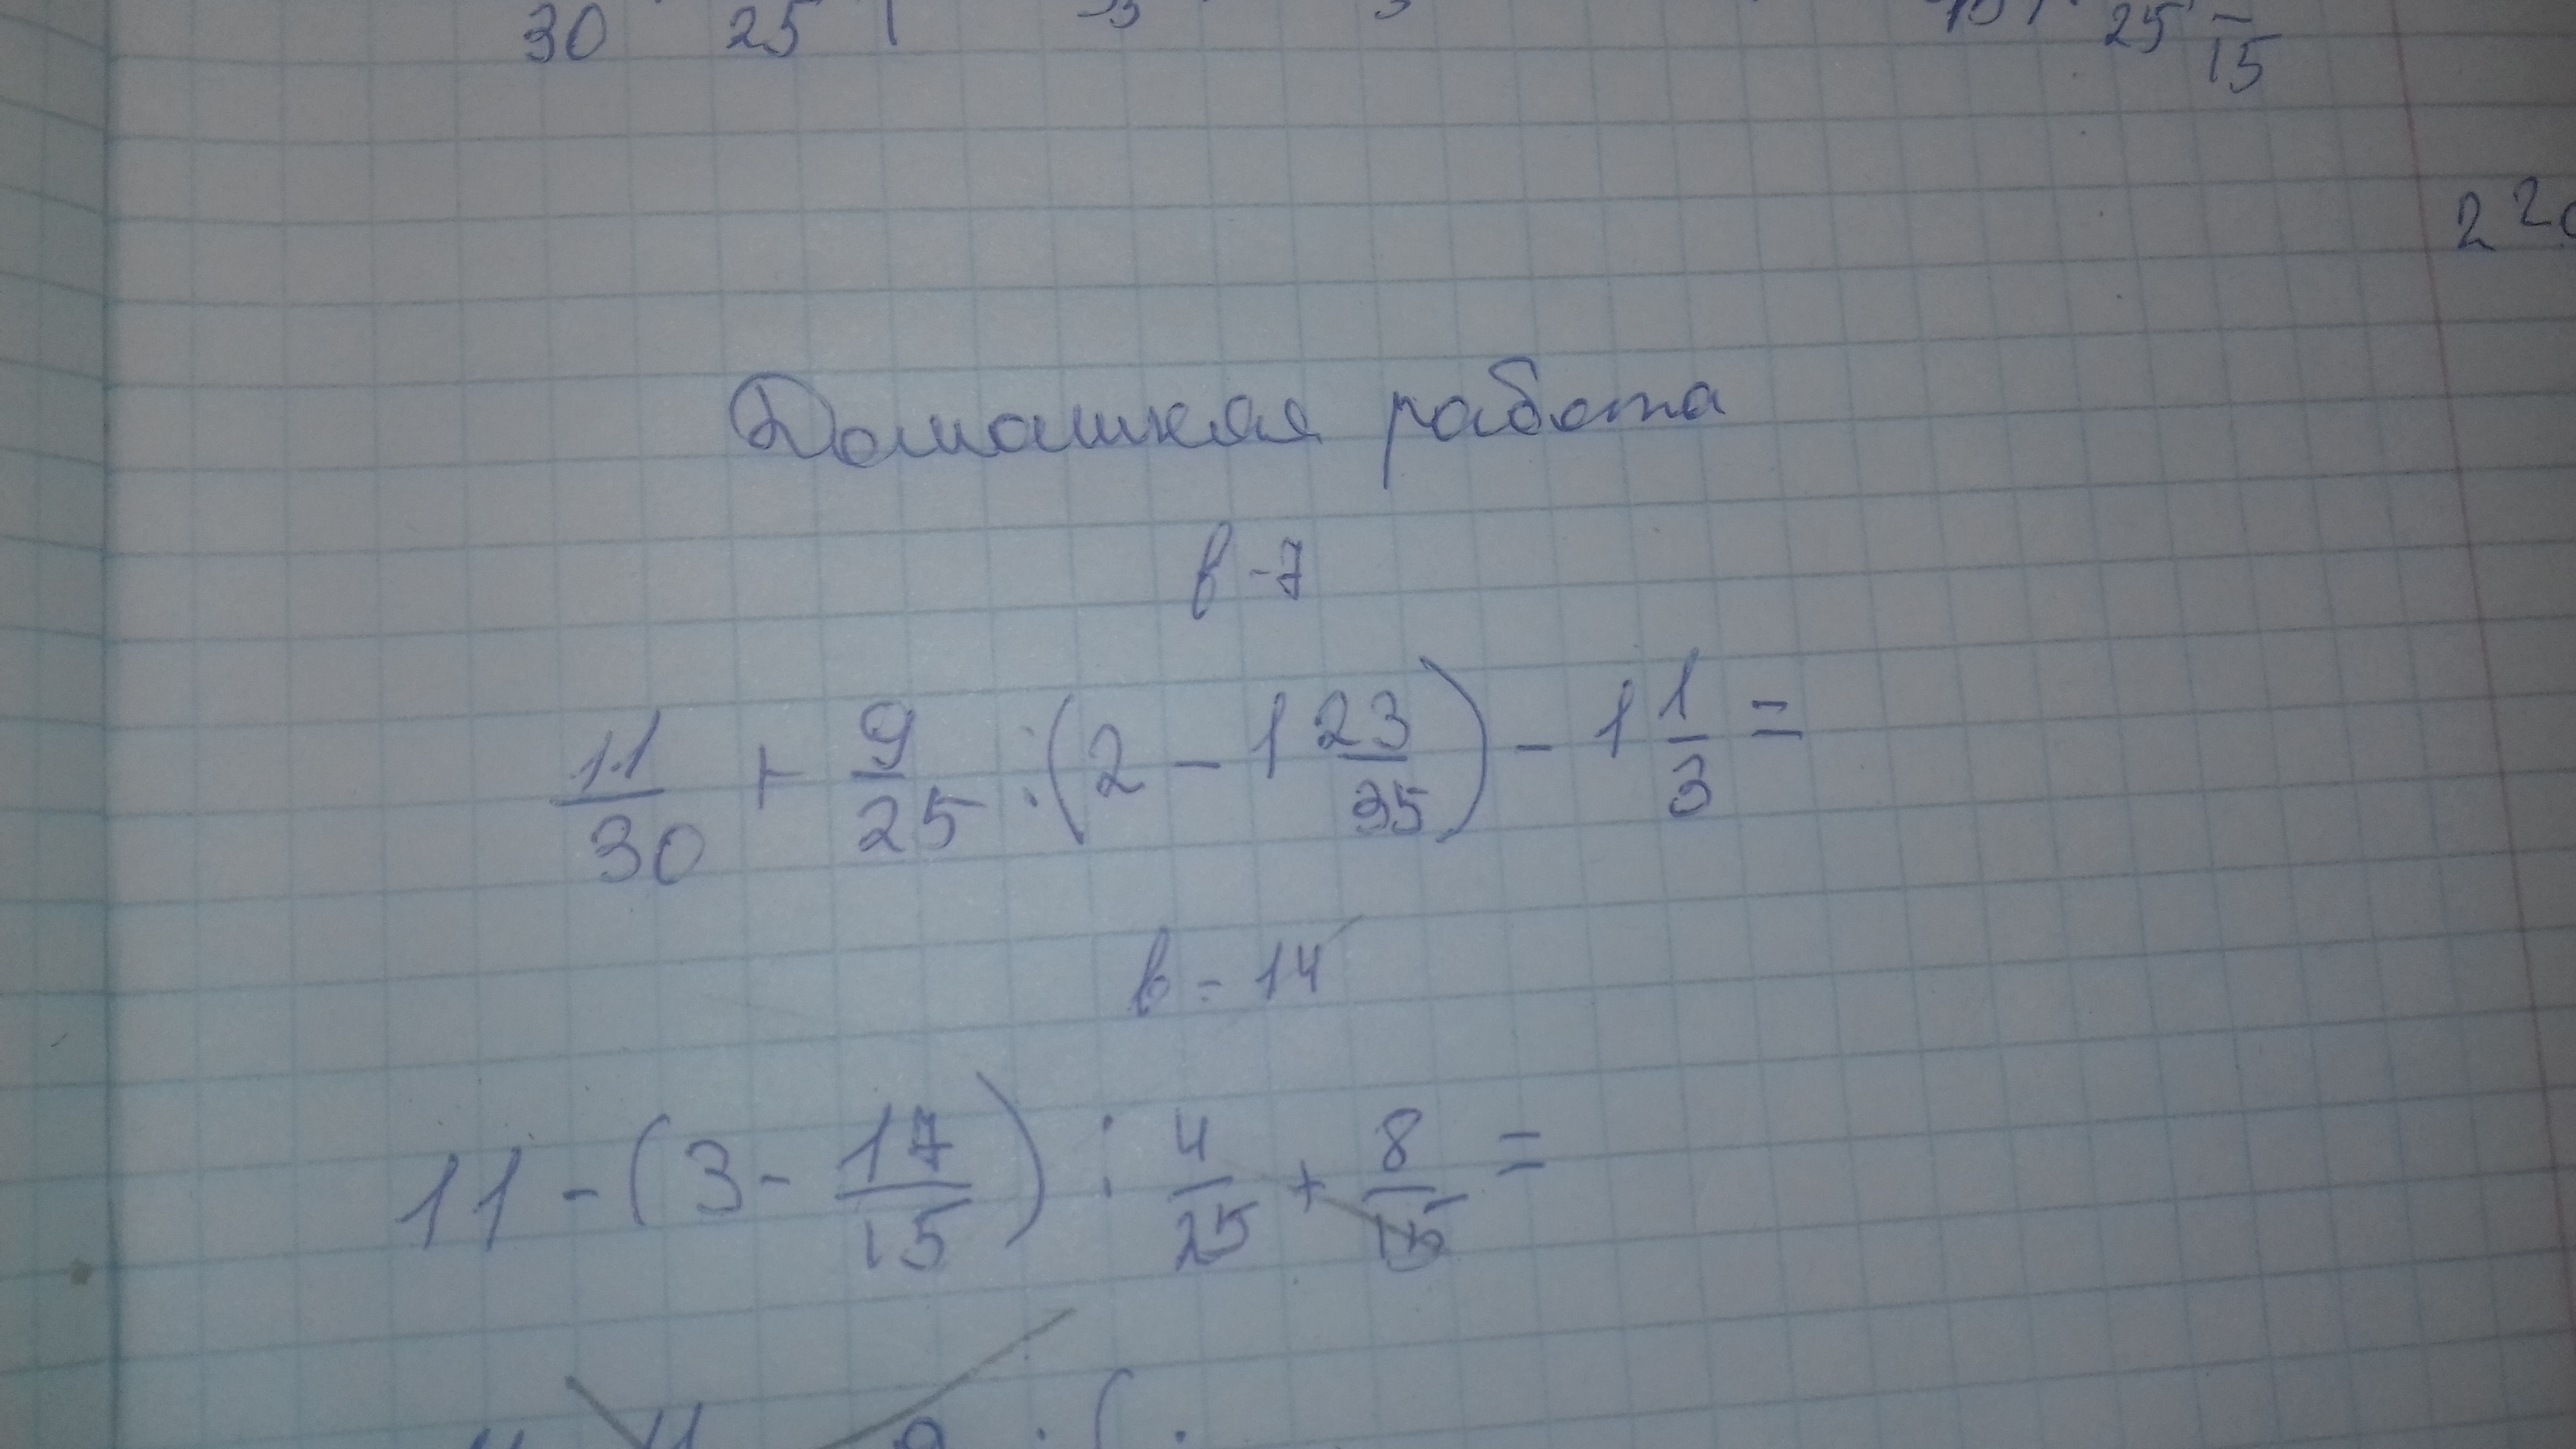 30 25
25 15
2 2
Домашняя работа
в-7
11/30 + 9/25 : (2 - 1 23/35) - 1 1/3 =
в-14
11 - (3 - 17/15) : 4/25 + 8/15 =